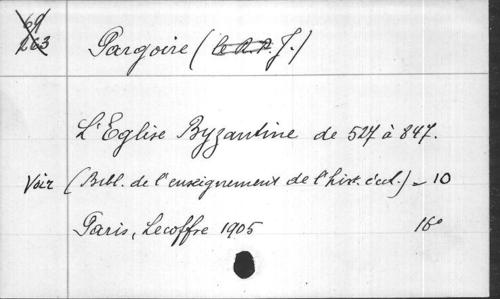 69
263
Pargoire (le R. P. J.)
L'Eglise Byzantine de 527 à 847.
Voir (Bibl. de l'enseignement de l'hist. eccl.) - 10
Paris, Lecoffre 1905 16°